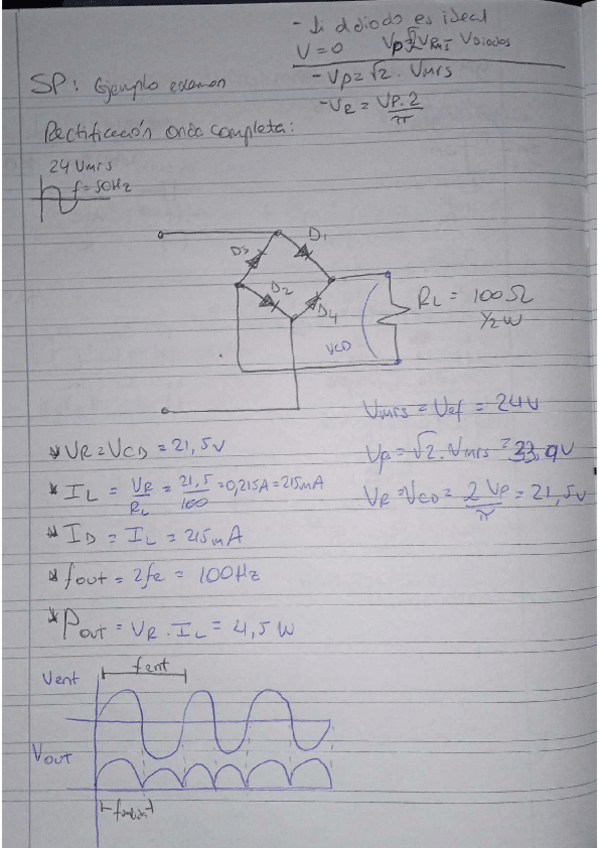 - Si d diodo es ideal
V = 0 Vp = √2 VRMS - VDiodos
- Vp = √2 . Vmrs
- VR = Vp . 2 / π
SP: Ejemplo examen
Rectificación onda completa:
24 Vmrs
f = 50Hz
D1
D2
D4
VCD
RL = 100Ω
1/2 W
Vmrs = Vef = 24V
Vp = √2 . Vmrs = 33,9V
VR = VCD = 2 Vp / π = 21,5V
* VR = VCD = 21,5V
* IL = VR / RL = 21,5 / 100 = 0,215A = 215mA
* ID = IL = 215mA
* fout = 2fe = 100Hz
* Pout = VR . IL = 4,5 W
Vent
fent
VOUT